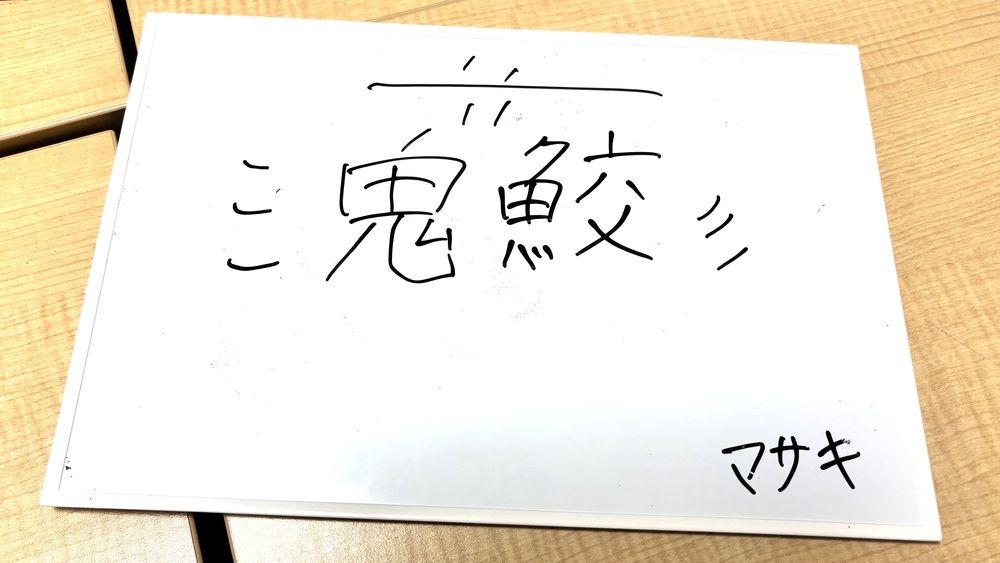 鬼鮫
マサキ